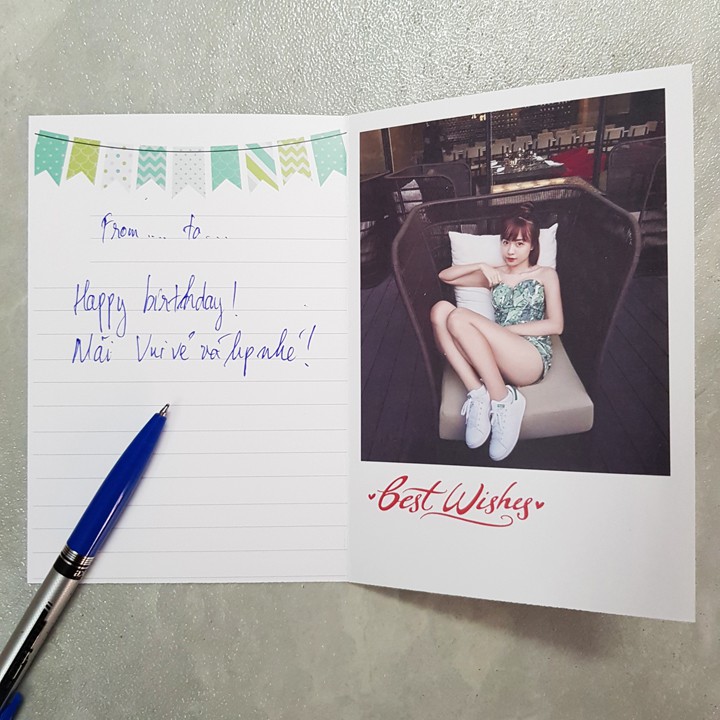 From .... to ....
Happy birthday!
Mãi Vui vẻ và hp nhé!
Best Wishes